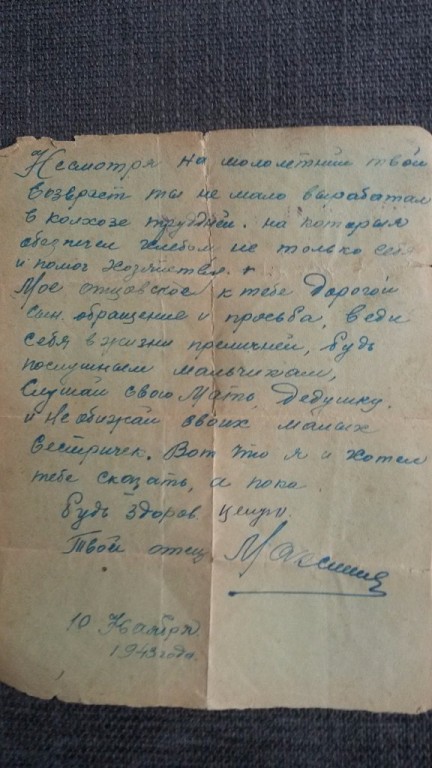 Несмотря на малолетний твой
возвраст ты не мало выработал
в колхозе трудней. на которых
обеспечил хлебом не только себя
и помог хозяйства.
Мое отцовское к тебе дорогой
сын. обращение и просьба, веди
себя в жизни преличней, будь
послушным мальчиком,
Слушай свою Мать, Дедушку,
и не обижай своих малых
Сестричек. Вот что я и хотел
тебе сказать, а пока
будь здоров целую.
Твой отец
10 Ноября
1943 года.